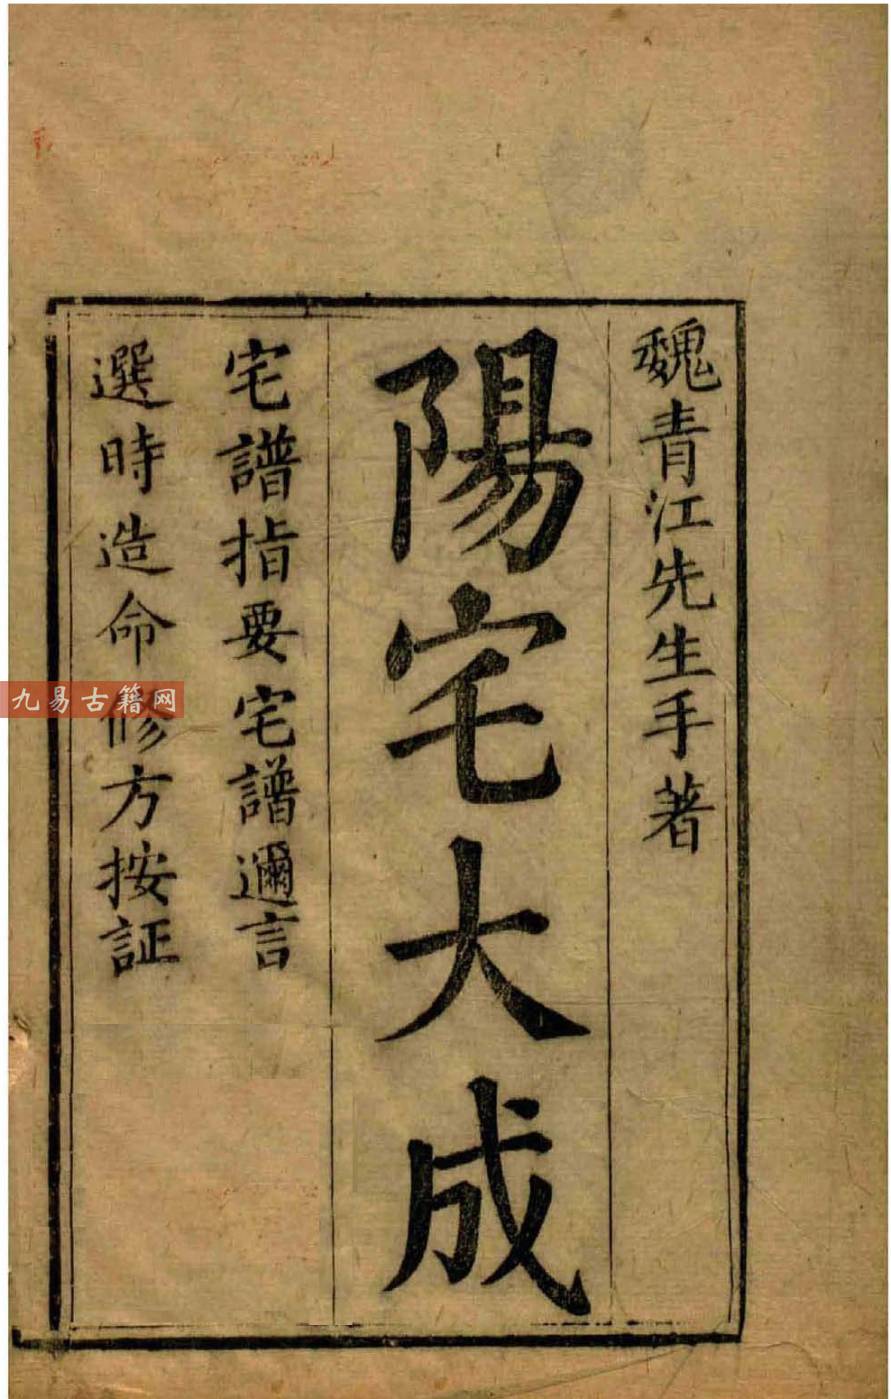 魏青江先生手著
陽宅大成
宅譜指要宅譜邇言
選時造命修方按証
九易古籍网